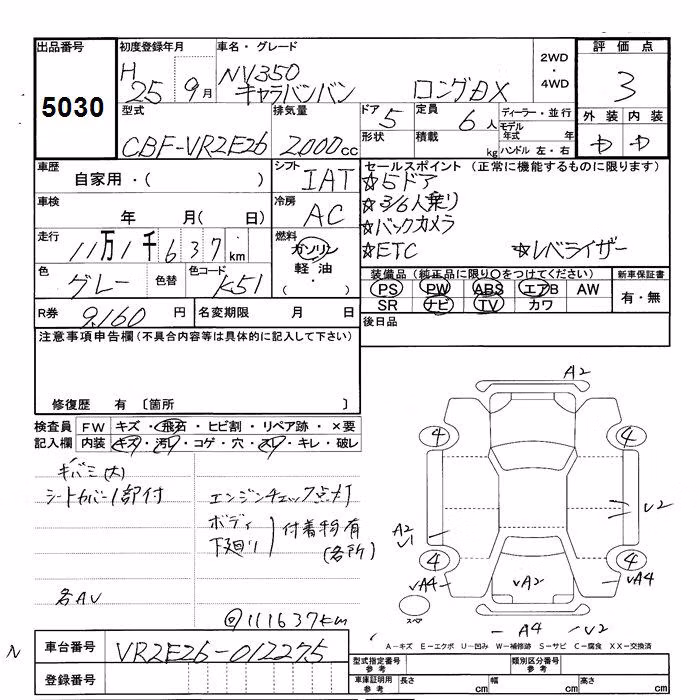 出品番号
5030
初度登録年月
H 25年 9月
車名・グレード
NV350
キャラバンバン ロングDX
2WD
・
4WD
評価点
3
型式
CBF-VR2E26
排気量
2000cc
ドア
5
形状
定員
6人
積載
kg
ディーラー・並行
モデル年式 年
ハンドル 左・右
外装 内装
中 中
車歴
自家用・( )
シフト
IAT
車検
年 月( 日)
冷房
AC
走行
11万1千637km
燃料
ガソリン
軽油
( ・ )
色
グレー
色替
色コード
K51
R券 9,160 円
名変期限 月 日
セールスポイント (正常に機能するものに限ります)
☆5ドア
☆3/6人乗り
☆バックカメラ
☆ETC ☆レベライザー
装備品(純正品に限り○をつけてください)
PS PW ABS エアB AW
SR ナビ TV カワ
新車保証書
有・無
後日品
注意事項申告欄(不具合内容等は具体的に記入して下さい)
修復歴 有 〔箇所 〕
検査員 FW キズ・飛石・ヒビ割・リペア跡・×要
記入欄 内装 キズ・汚レ・コゲ・穴・スレ・キレ・破レ
キバミ(大)
シートカバー1部付
エンジンチェック点灯
ボディ
下廻り
付着物有
(各所)
各AU
◎111637km
A2
4 4
A2
V1
V2
4 4
VA4 VA2 VA4
スペア
A4 V2
A-キズ E-エクボ U-凹み W-補修跡 S-サビ C-腐食 XX-交換済
N
車台番号 VR2E26-012275
登録番号
型式指定番号
参考
類別区分番号
参考
車庫証明用
参考
長さ cm 幅 cm 高さ cm